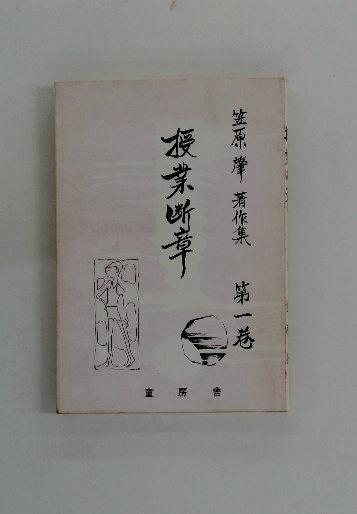 笠原肇著作集 第一巻
授業断章
童房舎